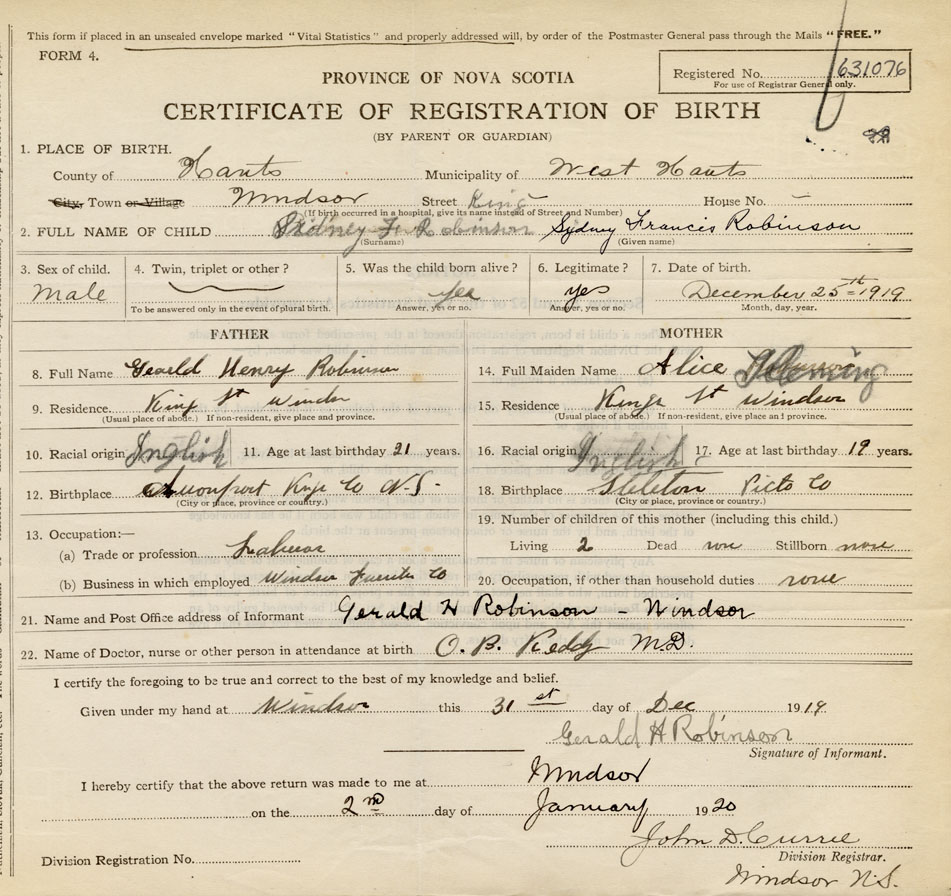 This form if placed in an unsealed envelope marked "Vital Statistics" and properly addressed will, by order of the Postmaster General pass through the Mails "FREE."
FORM 4.
Registered No. 631076
For use of Registrar General only.
PROVINCE OF NOVA SCOTIA
CERTIFICATE OF REGISTRATION OF BIRTH
(BY PARENT OR GUARDIAN)
1. PLACE OF BIRTH.
County of Hants Municipality of West Hants
City, Town or Village Windsor Street King House No. –
(If birth occurred in a hospital, give its name instead of Street and Number)
2. FULL NAME OF CHILD Sidney F. Robinson Sydney Francis Robinson
(Surname) (Given name)
3. Sex of child. 4. Twin, triplet or other? 5. Was the child born alive? 6. Legitimate? 7. Date of birth.
Male yes yes December 25th 1919
To be answered only in the event of plural birth. Answer, yes or no. Answer, yes or no. Month, day, year.
FATHER MOTHER
8. Full Name Gerald Henry Robinson 14. Full Maiden Name Alice Fleming
9. Residence. King St Windsor 15. Residence Kings St Windsor
(Usual place of abode.) If non-resident, give place and province. (Usual place of abode.) If non-resident, give place and province.
10. Racial origin English 11. Age at last birthday 21 years. 16. Racial origin English 17. Age at last birthday 19 years.
12. Birthplace Kings Co N.S. 18. Birthplace Picto Co
(City or place, province or country.) (City or place, province or country.)
13. Occupation:— 19. Number of children of this mother (including this child.)
(a) Trade or profession Labourer Living 2 Dead none Stillborn none
(b) Business in which employed Windsor Co 20. Occupation, if other than household duties none
21. Name and Post Office address of Informant Gerald H Robinson – Windsor
22. Name of Doctor, nurse or other person in attendance at birth O. B. Keddy M.D.
I certify the foregoing to be true and correct to the best of my knowledge and belief.
Given under my hand at Windsor this 31st day of Dec 1919
Gerald H Robinson
Signature of Informant.
I hereby certify that the above return was made to me at Windsor
on the 2nd day of January 1920
John D. Currie
Division Registration No. Division Registrar.
Windsor N.S.